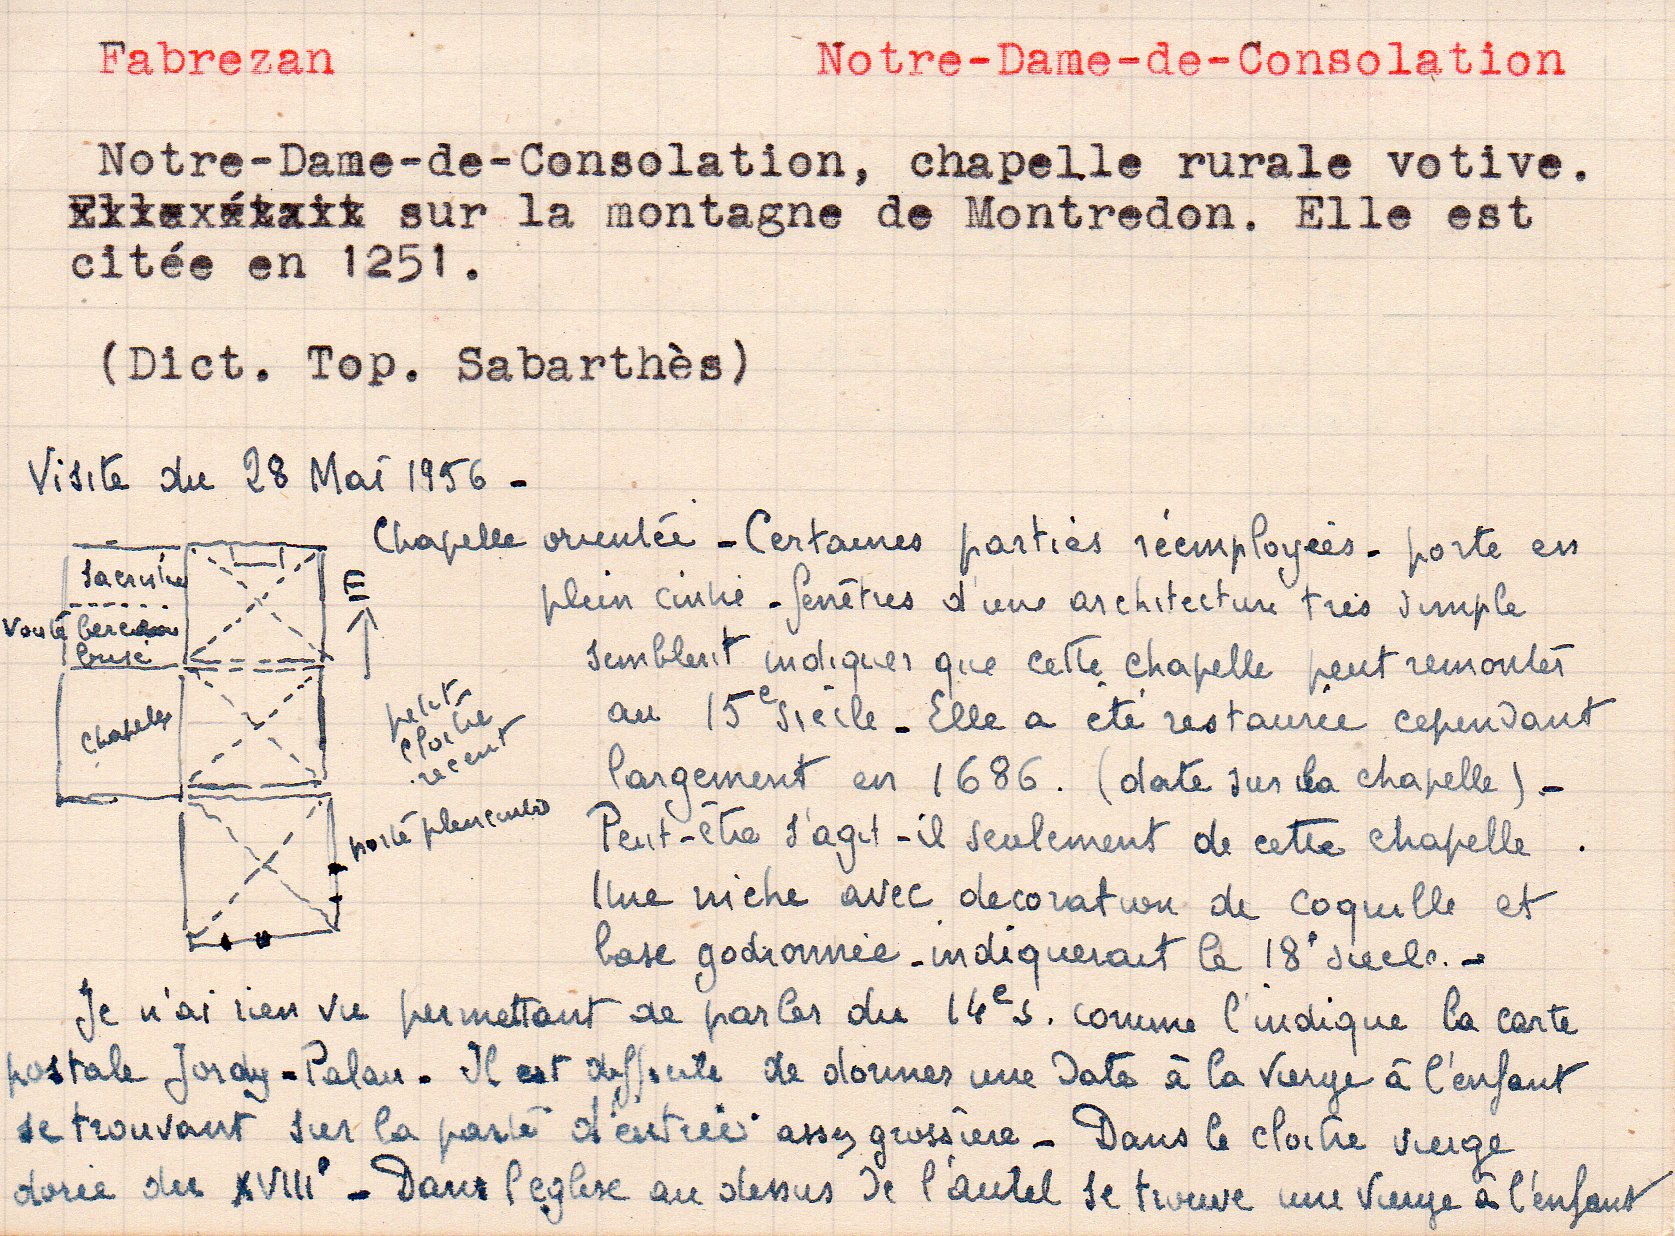 Fabrezan Notre-Dame-de-Consolation
Notre-Dame-de-Consolation, chapelle rurale votive.
sur la montagne de Montredon. Elle est
citée en 1251.
(Dict. Top. Sabarthès)
Visite du 28 Mai 1956 -
Chapelle orientée - Certaines parties réemployées - porte en
plein cintre - fenêtres d'une architecture très simple
semblent indiquer que cette chapelle peut remonter
au 15e siècle - Elle a été restaurée cependant
largement en 1686. (date sur la chapelle) -
Peut-être s'agit-il seulement de cette chapelle .
Une niche avec decoration de coquille et
base godronnée - indiquerait le 18e siècle. -
sacristie
E
voute berceau
brisé
chapelle
petit
cloitre
récent
porte plein cintre
Je n'ai rien vu permettant de parler du 14e s. comme l'indique la carte
postale Jordy-Palau - Il est difficile de donner une date à la Vierge à l'enfant
se trouvant sur la porte d'entrée assez grossière - Dans le cloitre vierge
dorée du XVIIIe - Dans l'église au dessus de l'autel se trouve une Vierge à l'enfant